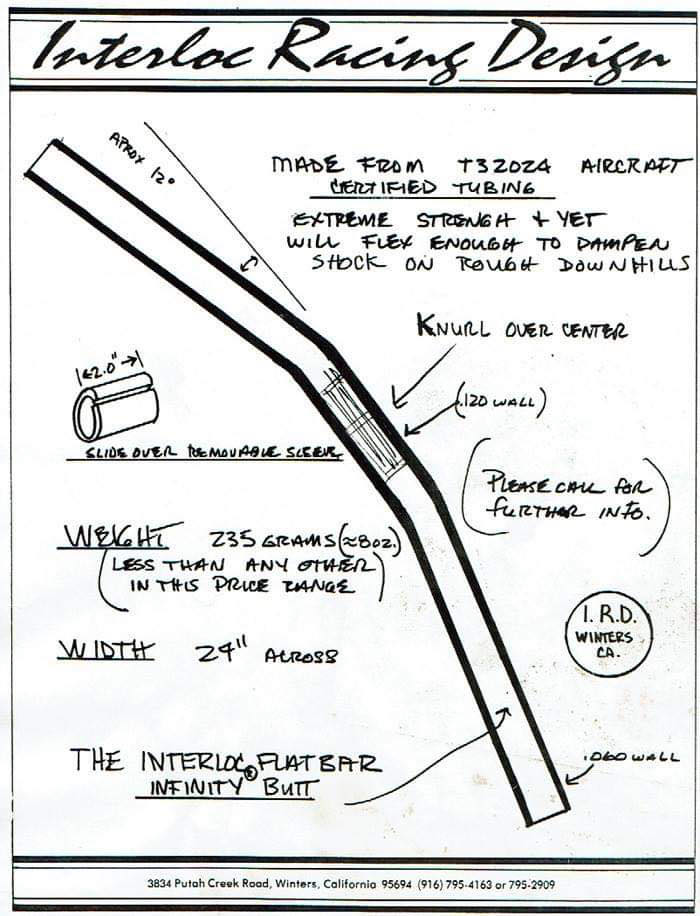 Interloc Racing Design
APROX 12°
MADE FROM T32024 AIRCRAFT
CERTIFIED TUBING
EXTREME STRENGH & YET
WILL FLEX ENOUGH TO DAMPEN
SHOCK ON ROUGH DOWNHILLS
KNURL OVER CENTER
(.120 WALL)
2.0"
SLIDE OVER REMOVABLE SLEEVE
(PLEASE CALL FOR
FURTHER INFO.)
WEIGHT 235 GRAMS (≈8oz.)
(LESS THAN ANY OTHER
IN THIS PRICE RANGE)
I.R.D.
WINTERS
CA.
WIDTH 24" ACROSS
THE INTERLOC® FLAT BAR
INFINITY BUTT
.060 WALL
3834 Putah Creek Road, Winters, California 95694 (916) 795-4163 or 795-2909